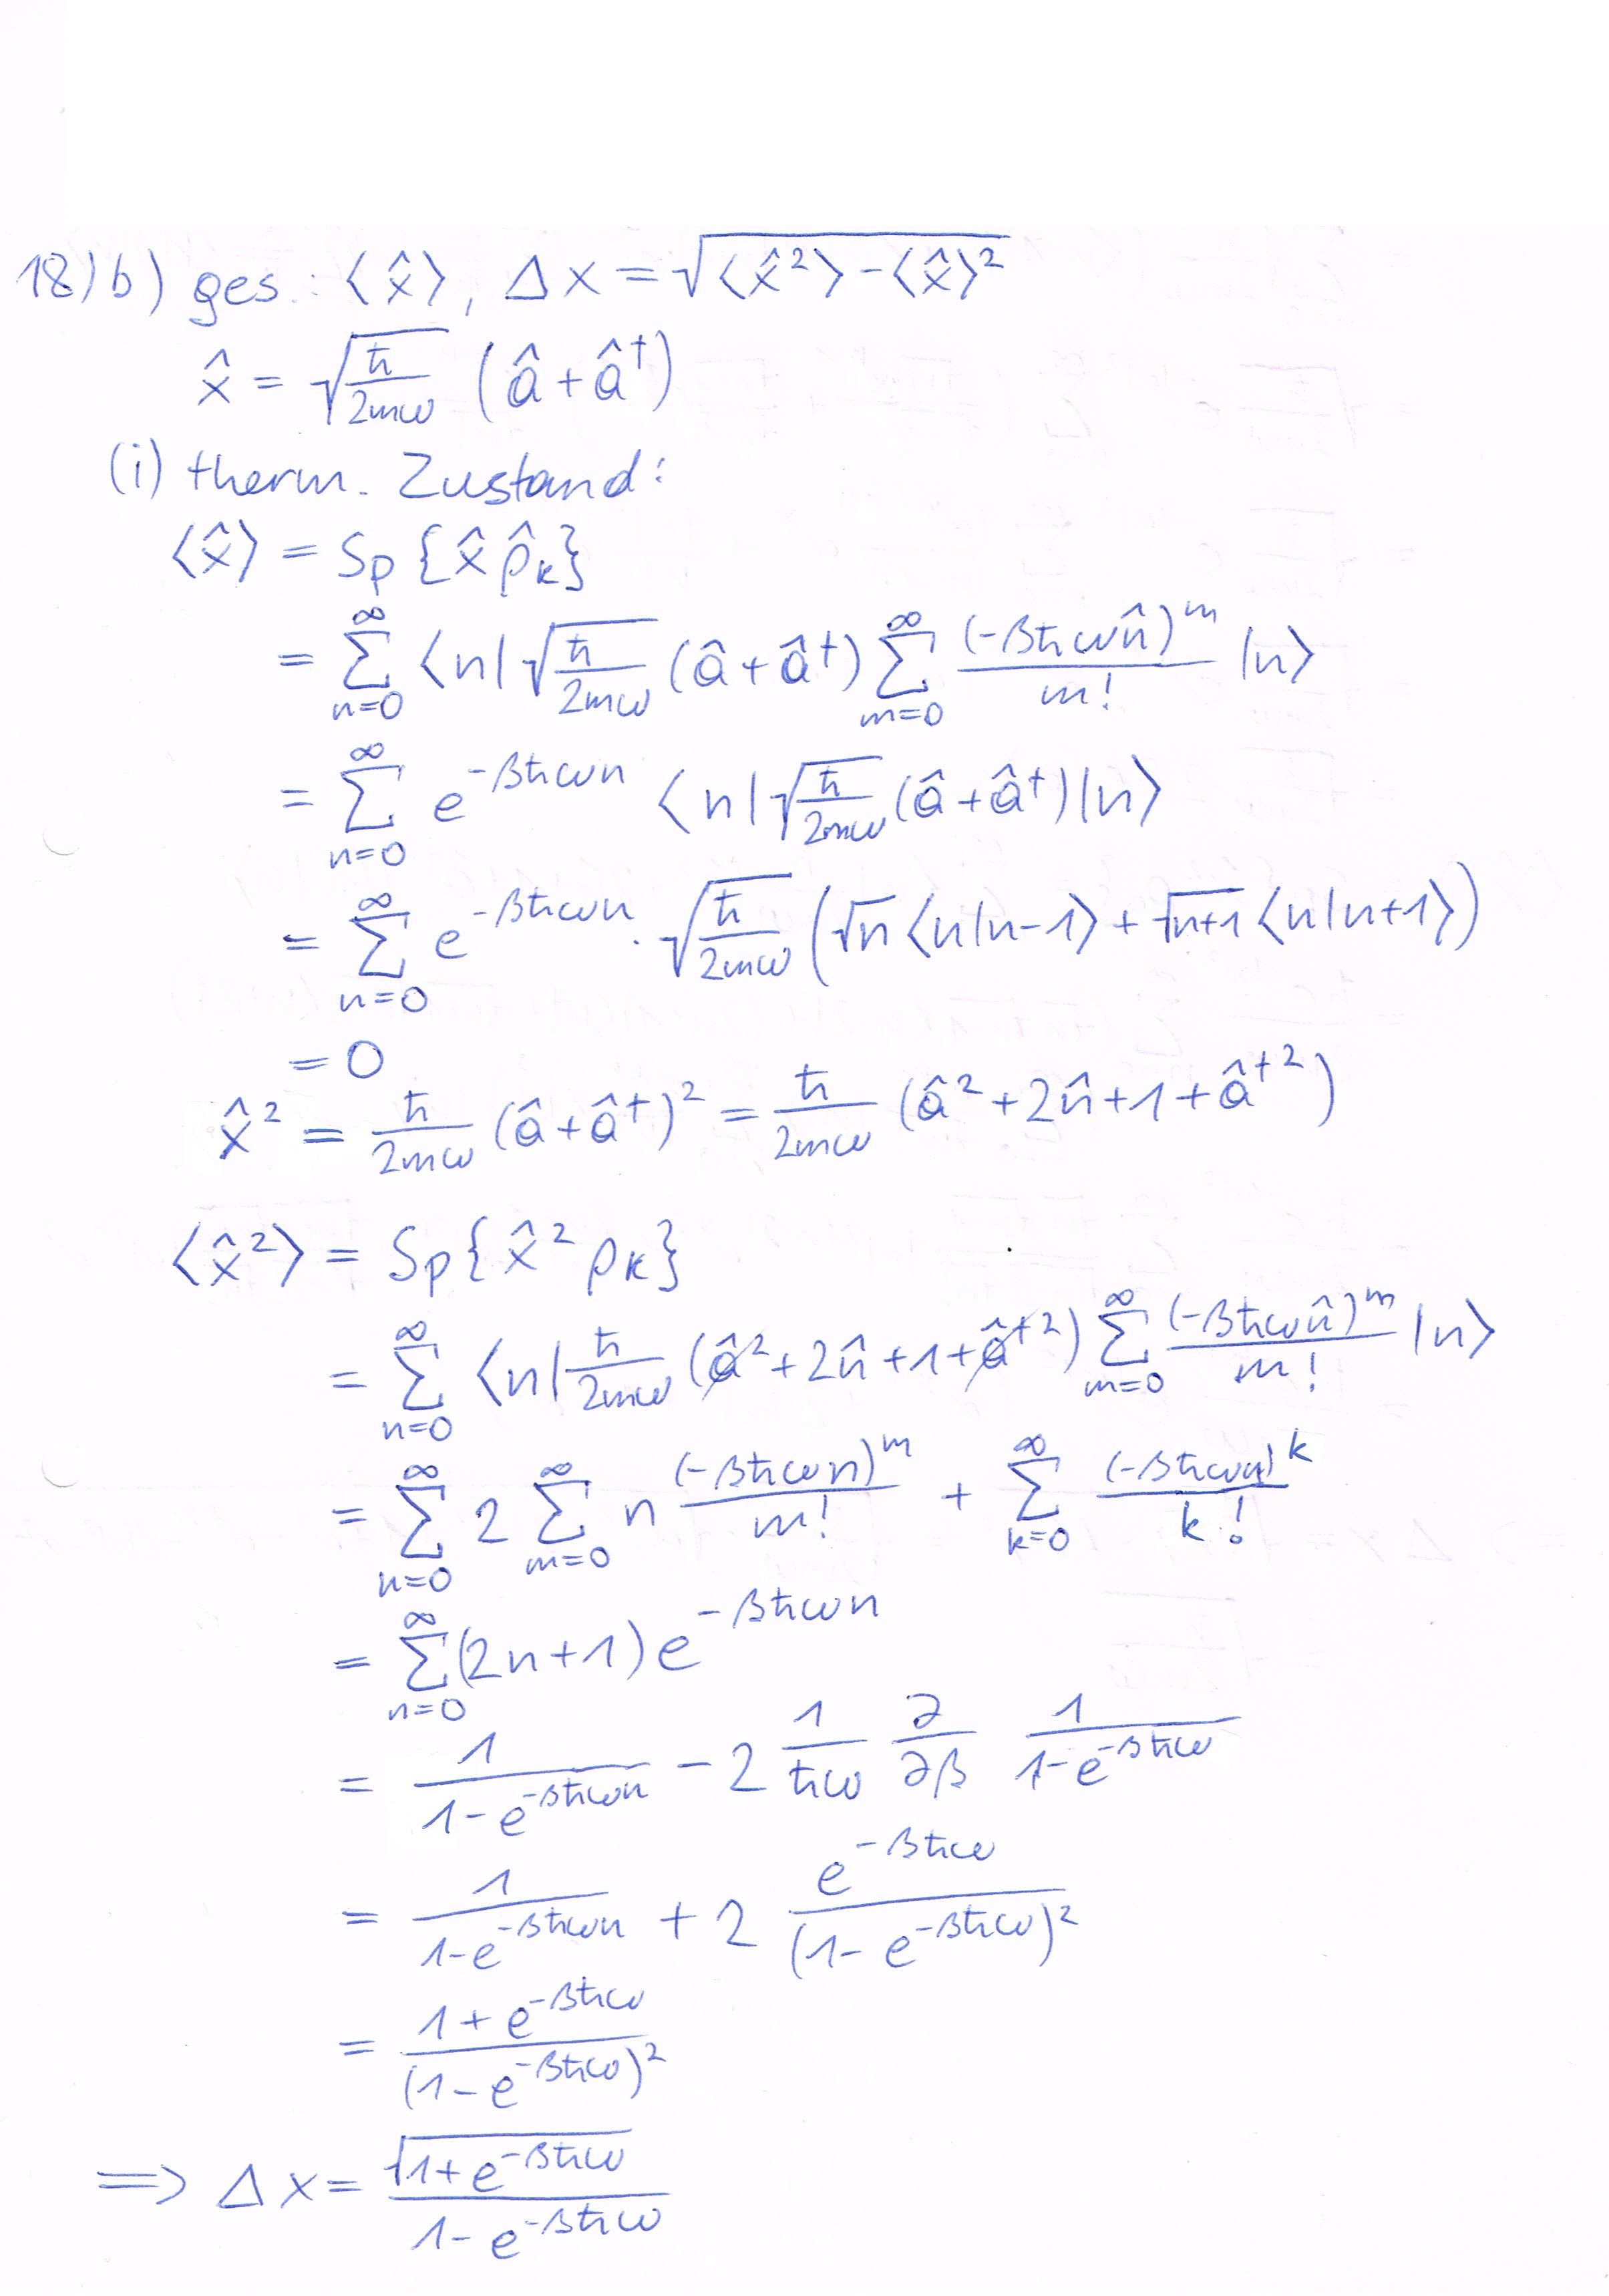 18) b) ges.: ⟨x̂⟩, Δx = √(⟨x̂²⟩-⟨x̂⟩²)
x̂ = √(ħ/2mω) (â+â†)
(i) therm. Zustand:
⟨x̂⟩ = Sp {x̂ ρ̂_K}
= ∑_{n=0}^{∞} ⟨n| √(ħ/2mω) (â+â†) ∑_{m=0}^{∞} (-βħωn̂)^m / m! |n⟩
= ∑_{n=0}^{∞} e^{-βħωn} ⟨n| √(ħ/2mω) (â+â†) |n⟩
= ∑_{n=0}^{∞} e^{-βħωn} · √(ħ/2mω) (√n ⟨n|n-1⟩ + √(n+1) ⟨n|n+1⟩)
= 0
x̂² = ħ/2mω (â+â†)² = ħ/2mω (â²+2n̂+1+â†²)
⟨x̂²⟩ = Sp{x̂² ρ_K}
= ∑_{n=0}^{∞} ⟨n| ħ/2mω (â²+2n̂+1+â†²) ∑_{m=0}^{∞} (-βħωn̂)^m / m! |n⟩
= ∑_{n=0}^{∞} 2 ∑_{m=0}^{∞} n (-βħωn)^m / m! + ∑_{k=0}^{∞} (-βħωn)^k / k!
= ∑_{n=0}^{∞} (2n+1) e^{-βħωn}
= 1 / (1-e^{-βħωn}) - 2 1/ħω ∂/∂β 1 / (1-e^{-βħω})
= 1 / (1-e^{-βħωn}) + 2 e^{-βħω} / (1-e^{-βħω})²
= (1+e^{-βħω}) / (1-e^{-βħω})²
⟹ Δx = √(1+e^{-βħω}) / (1-e^{-βħω})